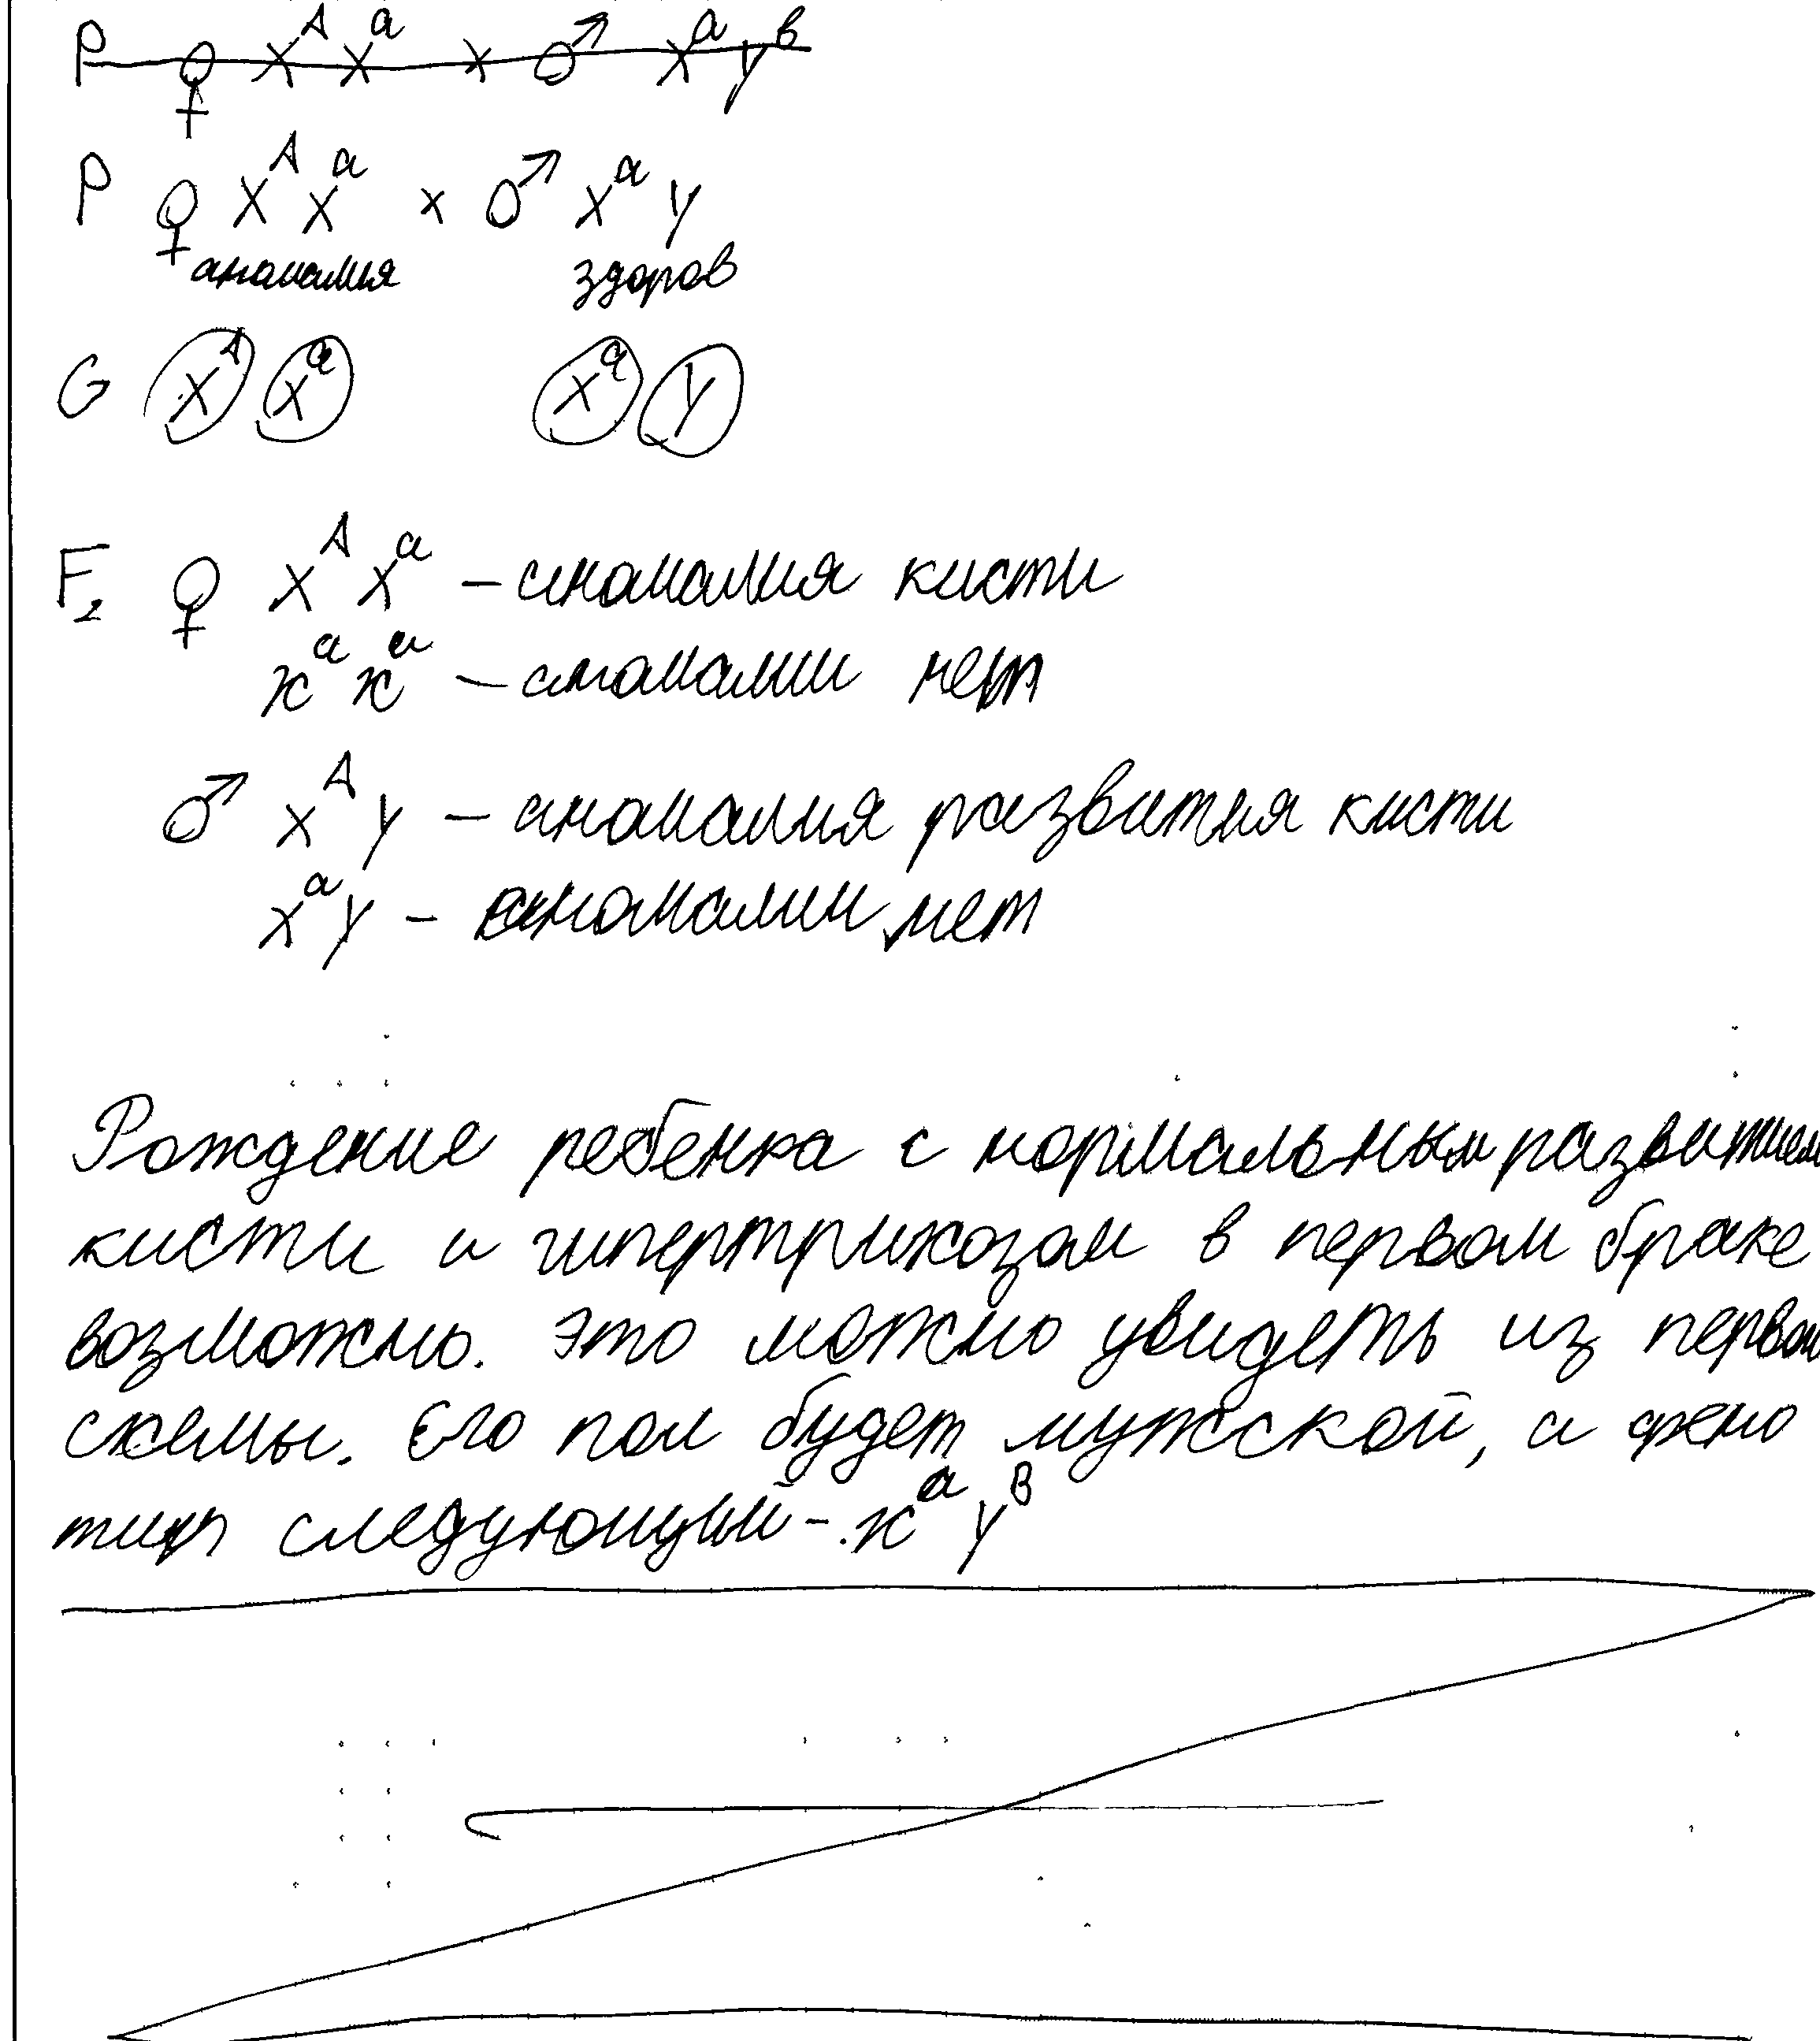 P ♀ XᴬXᵃ x ♂ XᵃYᵇ
P ♀ XᴬXᵃ x ♂ XᵃY
аномалия здоров
G Xᴬ Xᵃ Xᵃ Y
F₂ ♀ XᴬXᵃ – аномалия кисти
XᵃXᵃ – аномалии нет
♂ XᴬY – аномалия развития кисти
XᵃY – аномалии нет
Рождение ребенка с нормальным развитием
кисти и гипертрихозом в первом браке
возможно. Это можно увидеть из первой
схемы. Его пол будет мужской, а фено
тип следующий – XᵃYᴮ